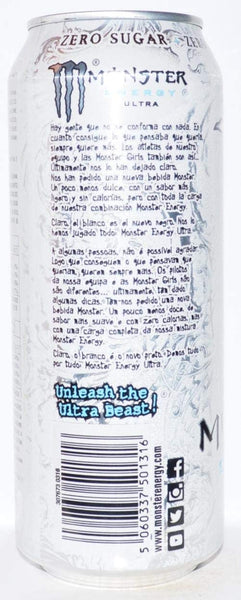 ZERO SUGAR
MONSTER
ENERGY
ULTRA
Hay gente que no se conforma con nada. En
cuanto consigue lo que pensaba que quería,
siempre quiere más. Los atletas de nuestro
equipo y las Monster Girls también son así...
Últimamente nos lo han dejado claro.
Nos han pedido una nueva bebida Monster.
Un poco menos dulce, con un sabor más
ligero y sin calorías, pero con toda la carga
de nuestra combinación Monster Energy.
Claro, el blanco es el nuevo negro. Nos la
hemos jugado todo: Monster Energy Ultra.
A algumas pessoas, não é possível agradar.
Logo que conseguem o que pensavam que
queriam, querem sempre mais. Os pilotos
da nossa equipa e as Monster Girls não
são diferentes... ultimamente, têm dado
algumas dicas. Têm nos pedido uma nova
bebida Monster. Um pouco menos doce, de
sabor mais suave e com zero calorias, mas
com uma carga completa, da nossa mistura
Monster Energy.
Claro, o branco é o novo preto. Demos tudo
por tudo: Monster Energy Ultra.
Unleash the
Ultra Beast!
507673 0318
5 060337 501316
www.monsterenergy.com
M